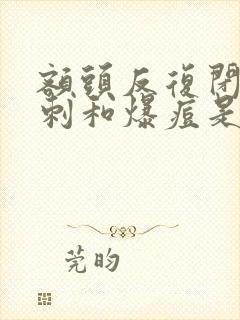 額頭反復閉
刺和爆痘是
莞昀